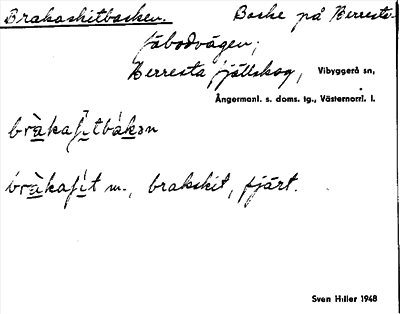 Brakaskitbacken. Backe på Herresta-
fäbodvägen,
Herresta fjällskog, Vibyggerå sn,
Ångermanl. s. doms. tg., Västernorrl. l.
bràkaʃìtbàkən
bràkaʃìt m., brakskit, fjärt.
Sven Hiller 1948